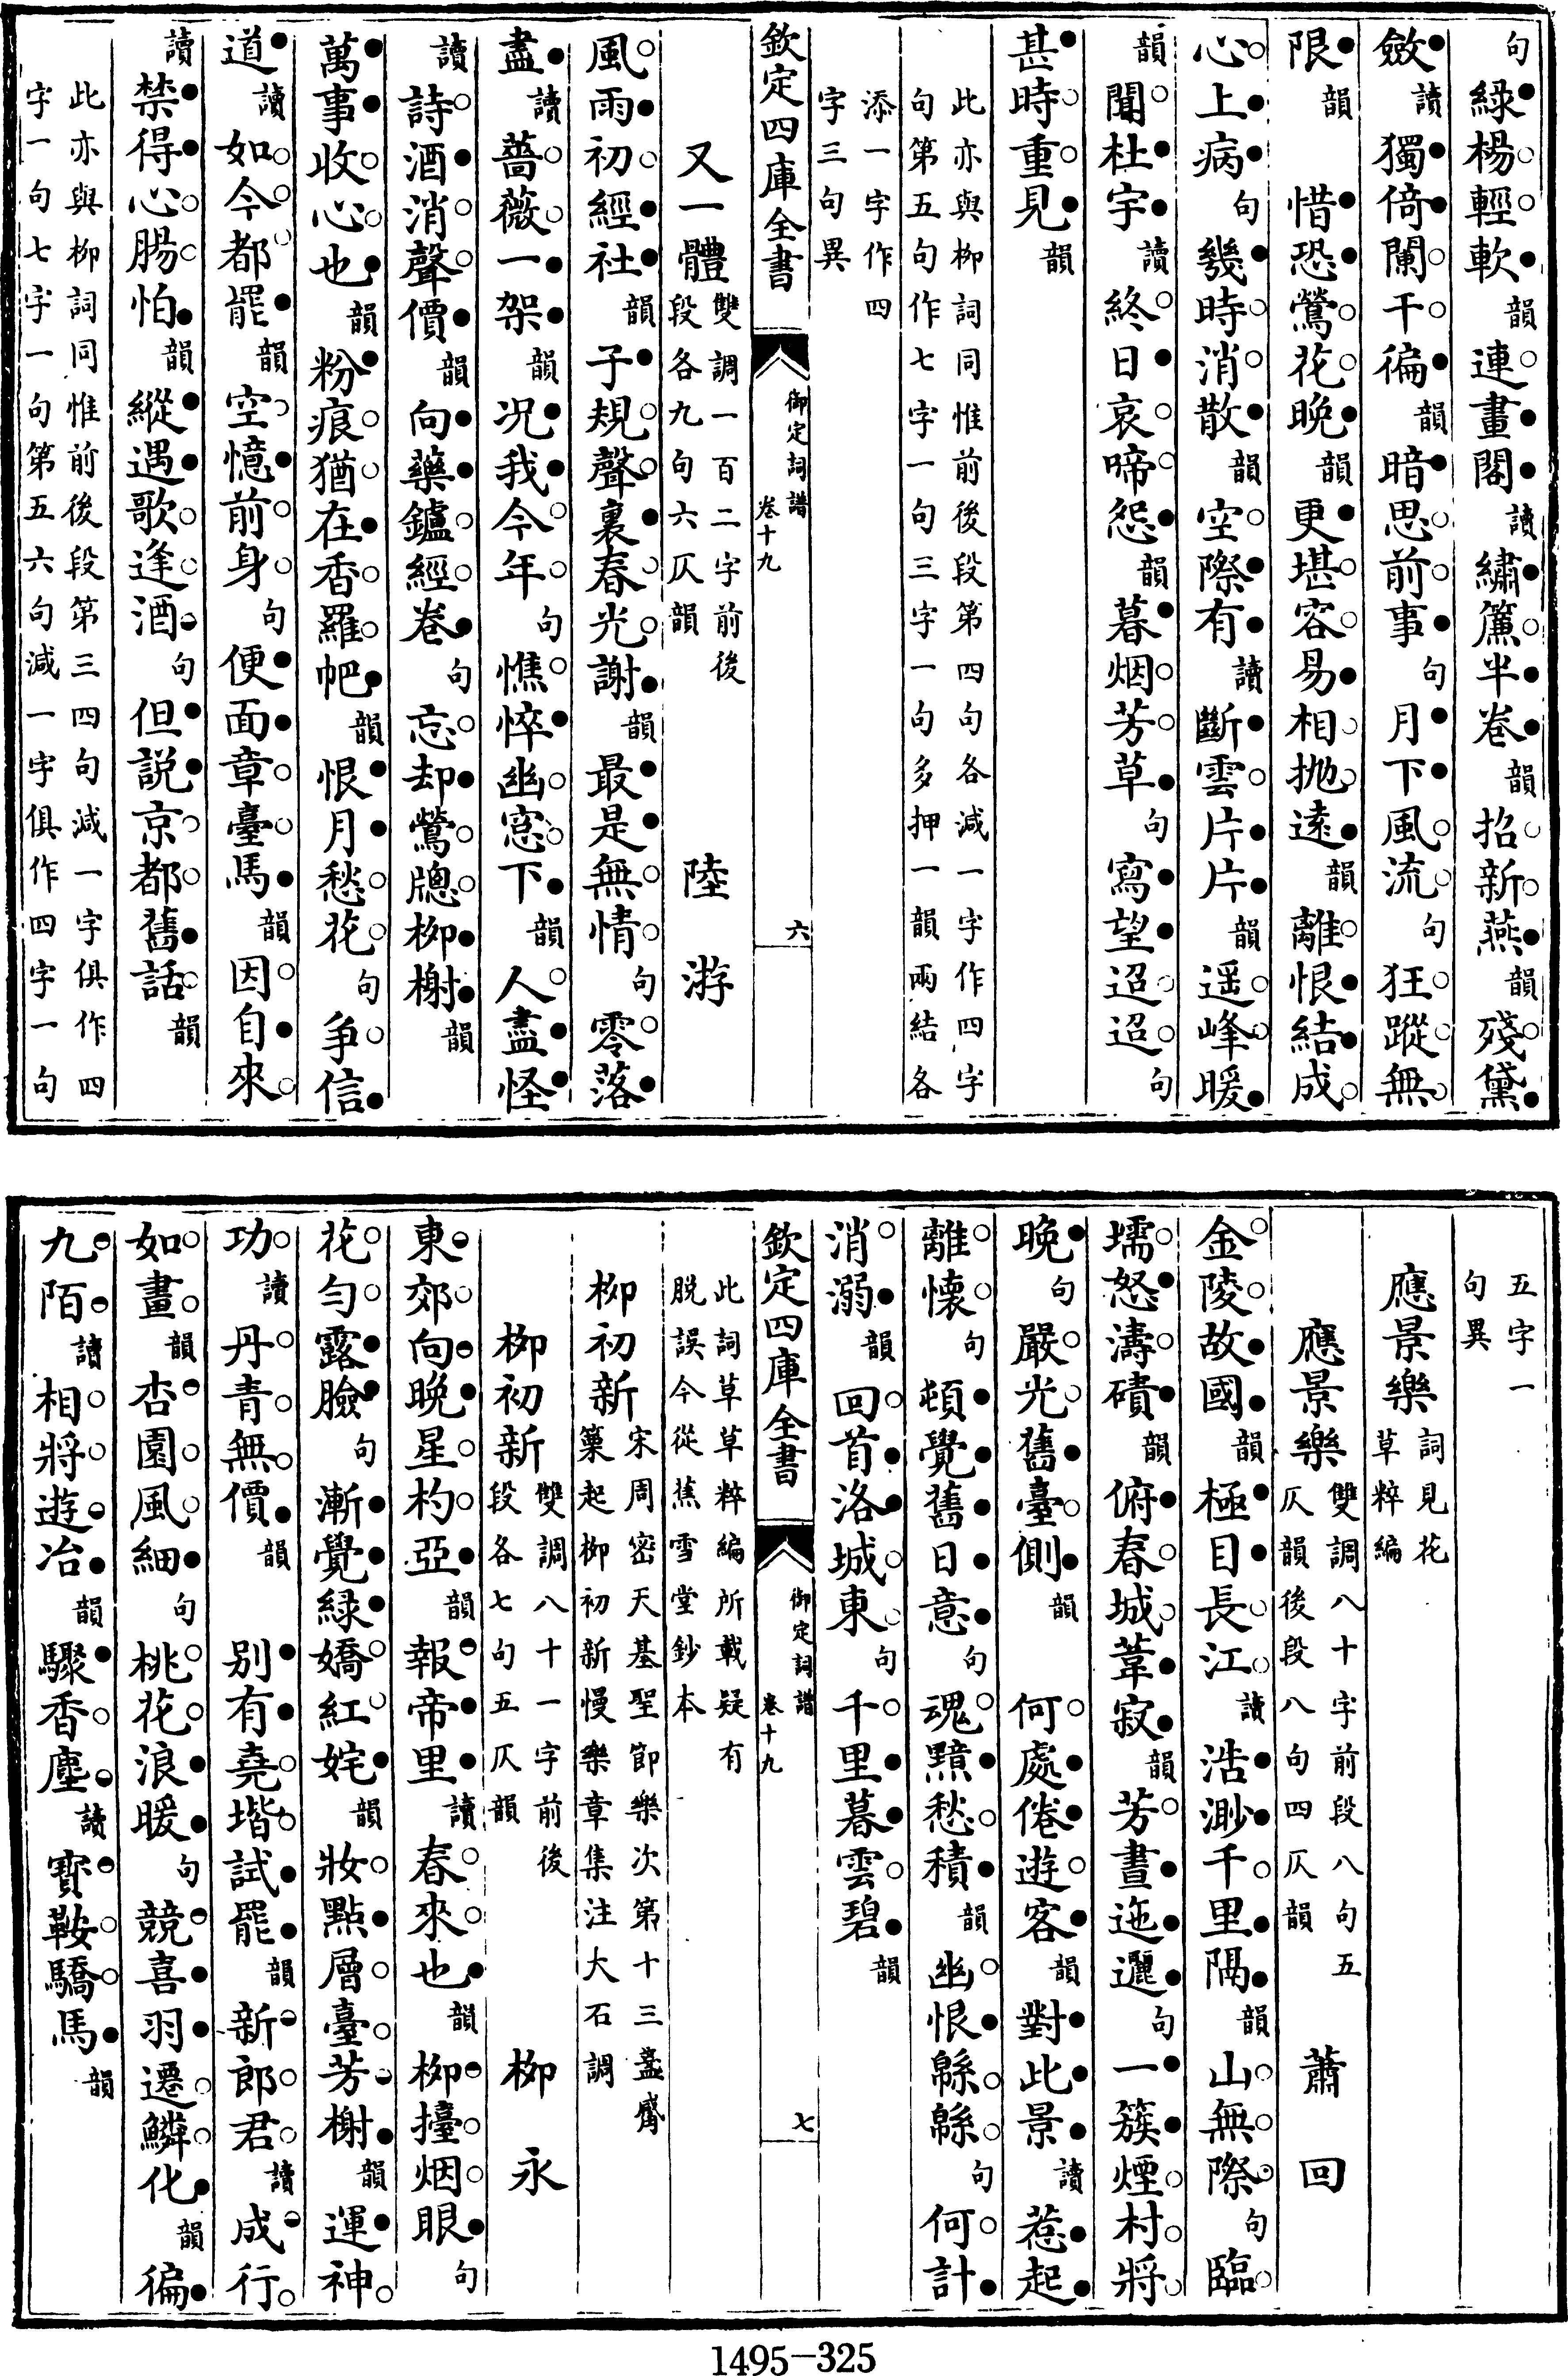 句綠楊輕軟韻連畫閣讀繡簾半卷韻招新燕韻殘黛
斂讀獨倚闌干徧韻暗思前事句月下風流句狂蹤無
限韻惜恐鶯花晚韻更堪容易相抛遠韻離恨結成
心上病句幾時消散韻空際有讀斷雲片片韻遥峰暖
韻聞杜宇讀終日哀啼怨韻暮烟芳草句寫望迢迢句
甚時重見韻
此亦與柳詞同惟前後段第四句各減一字作四字
句第五句作七字一句三字一句多押一韻兩結各
添一字作四
字三句異
欽定四庫全書
御定詞譜
卷十九
六
又一體雙調一百二字前後
段各九句六仄韻
陸游
風雨初經社韻子規聲裏春光謝韻最是無情句零落
盡讀薔薇一架韻况我今年句憔悴幽窓下韻人盡怪
讀詩酒消聲價韻向藥鑪經卷句忘却鶯牕柳榭韻
萬事收心也韻粉痕猶在香羅帊韻恨月愁花句争信
道讀如今都罷韻空憶前身句便面章臺馬韻因自來
讀禁得心腸怕韻縱遇歌逢酒句但說京都舊話韻
此亦與柳詞同惟前後段第三四句減一字俱作四
字一句七字一句第五六句減一字俱作四字一句
五字一
句異
應景樂詞見花
草粹編
應景樂雙調八十字前段八句五
仄韻後段八句四仄韻
蕭回
金陵故國韻極目長江讀浩渺千里隔韻山無際句臨
壖怒濤磧韻俯春城葦寂韻芳晝迤邐句一簇煙村將
晚句嚴光舊臺側韻何處倦遊客韻對此景讀惹起
離懷句頓覺舊日意句魂黯愁積韻幽恨緜緜句何計
消溺韻回首洛城東句千里暮雲碧韻
欽定四庫全書
御定詞譜
卷十九
七
此詞草草粹編所載疑有
脱誤今從蕉雪堂鈔本
柳初新宋周密天基聖節樂次第十三盞觱
篥起柳初新慢樂章集注大石調
柳初新雙調八十一字前後
段各七句五仄韻
柳永
東郊向晚星杓亞韻報帝里讀春來也韻柳擡烟眼句
花勻露臉句漸覺綠嬌紅姹韻妝點層臺芳榭韻運神
功讀丹青無價韻别有堯堦試罷韻新郎君讀成行
如畫韻杏園風細句桃花浪暖句競喜羽遷鱗化韻徧
九陌讀相將遊冶韻驟香塵讀寳鞍驕馬韻
1495-325